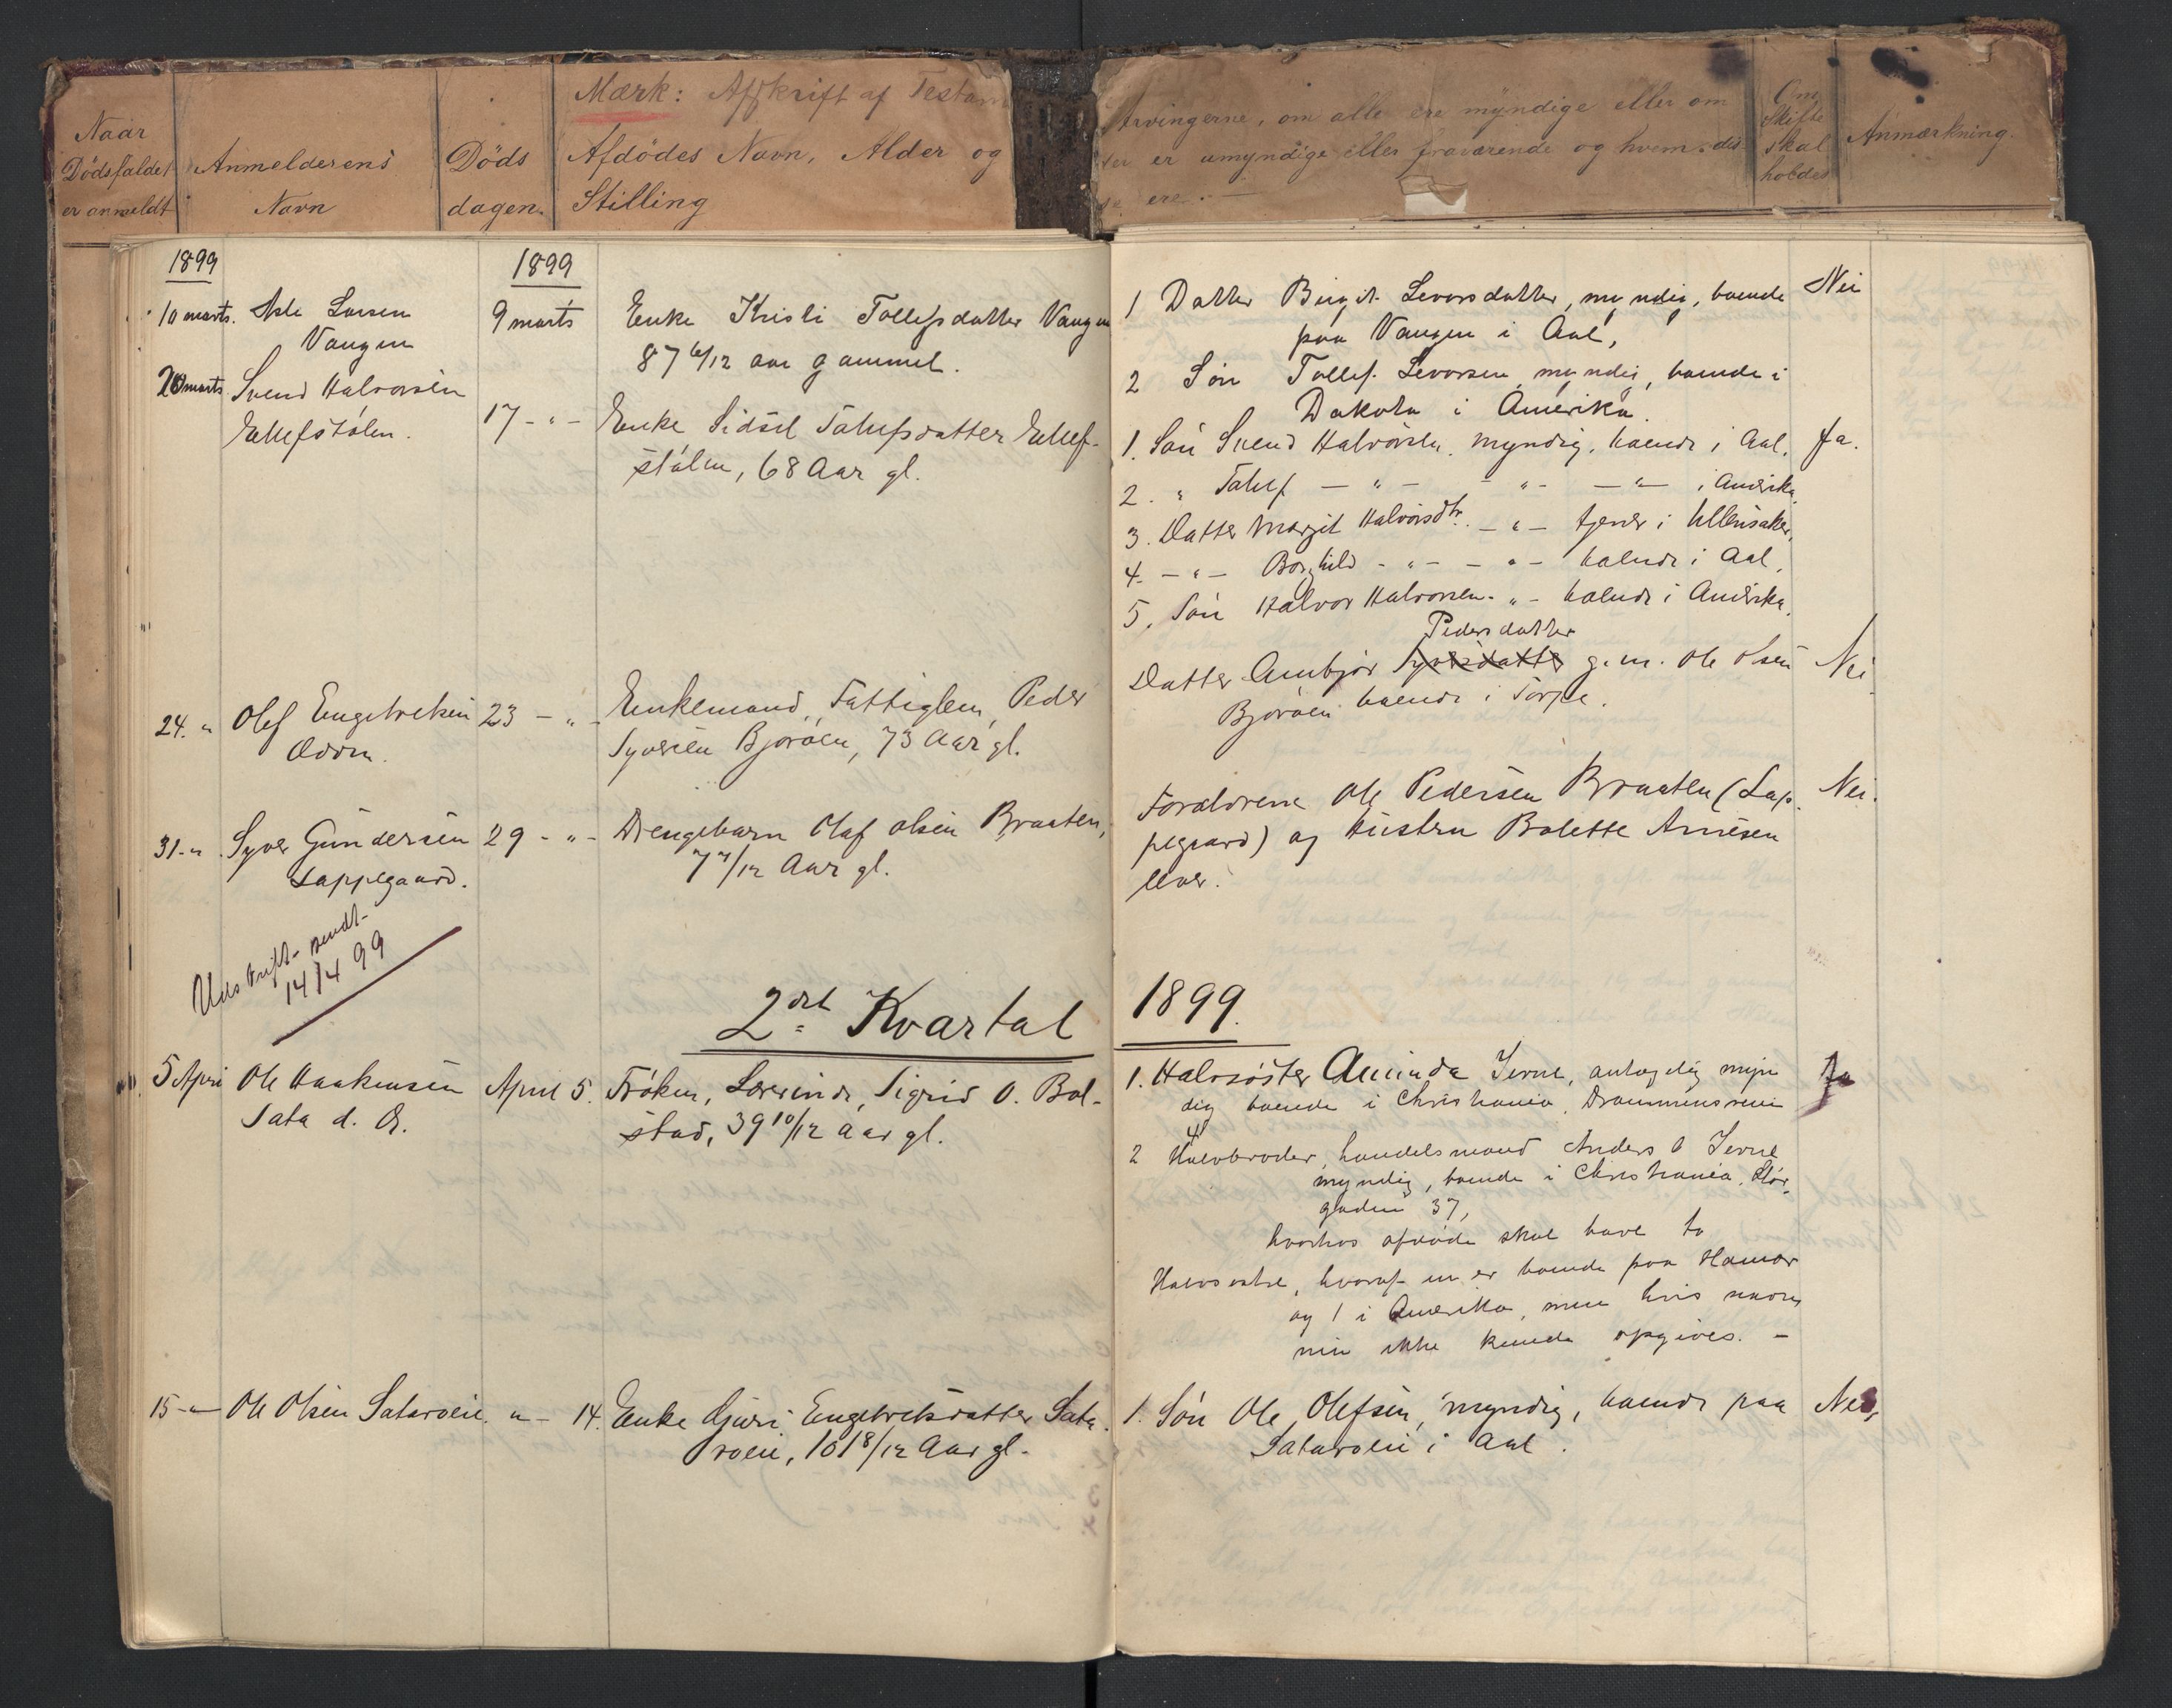 Mærk: Afskrift af Testam
Naar
Dödsfaldet
er anmeldt
Anmelderens
Navn
Döds
dagen.
Afdödes Navn, Alder og
Stilling
Arvingerne, om alle ere myndige eller om
er umyndige eller fraværende og hvem dis
se ere.
Om
Skifte
skal
holdes
Anmærkning.
1899
1899
10 marts. Asle Larsen
Vangen
9 marts
Enke Kristi Tollefsdatter Vangen
87 6/12 aar gammel.
1 Datter Birgit Levorsdatter, myndig, boende
paa Vangen i Aal,
2 Søn Tollef Levorsen myndig, boende i
Dakota i Amerika.
Nei
20 marts Svend Halvorsen
Ellefstølen.
17 - " -
Enke Sidsel Tolefsdatter Ellef-
stølen, 68 Aar gl.
1. Søn Svend Halvorsen, myndig, boende i Aal.
2. " Tolef - " - - " - - " - i Amerika.
3. Datter Margit Halvorsdtr. - " - tjener i Ullensaker,
4. - " - Borghild - " - - " - boende i Aal.
5. Søn Halvor Halvorsen - " - boende i Amerika.
Ja.
24. " Olef Engebretsen
23 - " -
Enkemand, Fattiglem, Peder
Syversen Bjøroen, 73 Aar gl.
Pedersdatter
Datter Ambjør Syversdatter g. m. Ole Olsen
Bjøroen boende i Torpe.
Nei
31 - " Syver Gundersen
Lappegaard.
29 - " -
Drengebarn Olaf Olsen Braaten,
7 7/12 Aar gl.
Forældrene Ole Pedersen Braaten (Lap-
pegaard) og Hustru Bolette Arnesen
lever.
Nei.
Udskrift sendt
14/4 99
2det Kvartal 1899.
5 April Ole Haakensen
Sata d. Æ.
April 5.
Frøken, Lærerinde, Sigrid O. Bol-
stad, 39 10/12 Aar gl.
1. Halvsøster Aminda Jerne, antagelig myn
dig boende i Christiania, Drammensveien
4
2 Halvbroder, handelsmand Anders O Jerne
myndig, boende i Christiania, Stor-
gaden 37,
hvorhos afdøde skal have to
Halvsøstre, hvoraf en er boende paa Hamar
og 1 i Amerika, men hvis navne
nu ikke kunde opgives. -
Ja
15 - " - Ole Olsen Sataroen.
" - 14.
Enke Guri Engebretsdatter Sata-
roen, 101 8/12 Aar gl.
1. Søn Ole Olefsen, myndig, boende paa
Sataroen i Aal.
Nei